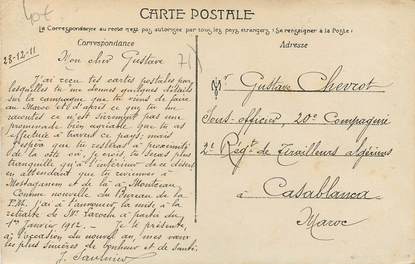 CARTE POSTALE
La Correspondance au recto n'est pas autorisée par tous les pays étrangers (Se renseigner à la Poste)
Correspondance
Adresse
28-12-11
Mon cher Gustave
J'ai reçu tes cartes postales par
lesquelles tu me donnes quelques détails
sur la campagne que tu viens de faire
au Maroc et d'après ce que tu me
racontes ce n'est sûrement pas une
promenade bien agréable que tu as
effectuée à travers ce pays; mais
j'espère que tu resteras à proximité
de la côte où, je crois, tu seras plus
tranquille qu'à l'intérieur de ce
en attendant que tu reviennes à
Mostaganem et de là à
Comme nouvelle du Bureau de la
J'ai à t'annoncer la mise à la
retraite de Mr Laroche à partir du
1er Janvier 1912. Je te présente,
à l'occasion du nouvel an, mes vœux
les plus sincères de bonheur et de santé.
J. Saulnier
Mr Gustave Chevrot
Sous-officier, 20e Compagnie
2e Régt de Tirailleurs algériens
à Casablanca
Maroc